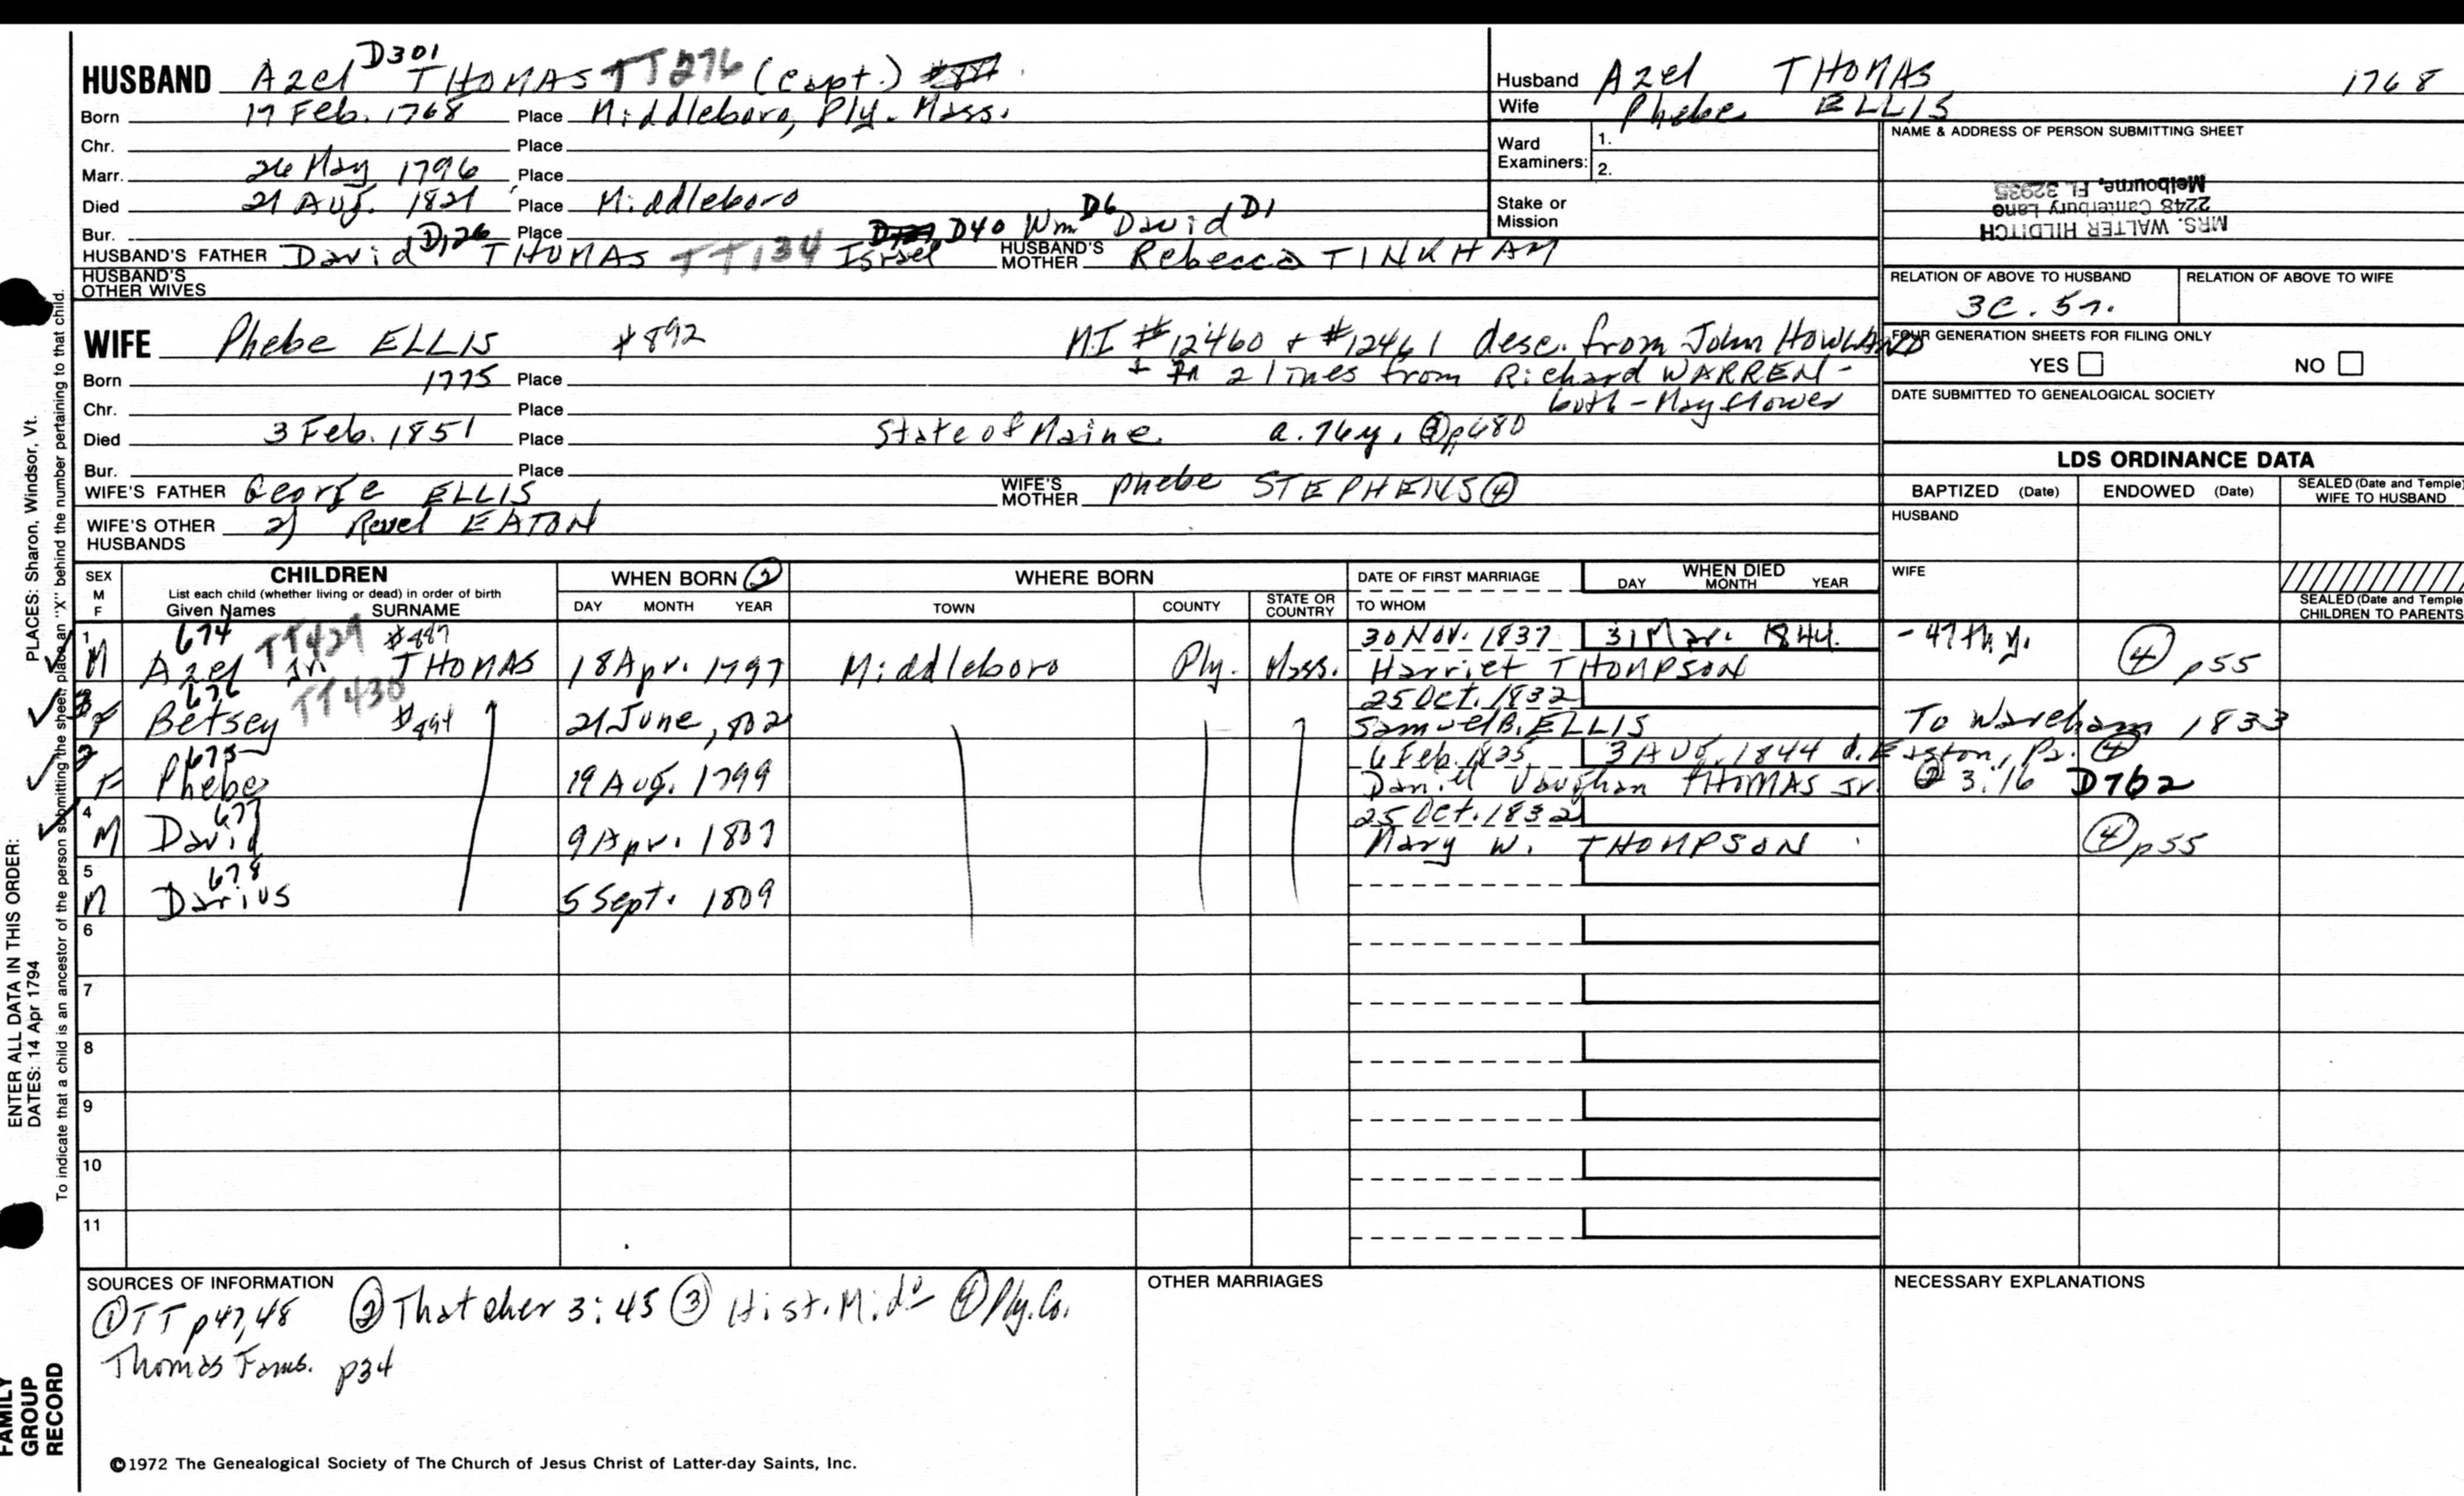 HUSBAND Azel D301 THOMAS TT276 (capt.)
Born 17 Feb. 1768 Place Middleboro, Ply. Mass.
Chr. Place
Marr. 26 May 1796 Place
Died 21 Aug. 1821 Place Middleboro
Bur. Place
HUSBAND'S FATHER David D126 THOMAS TT134 Israel D40 Wm D6 David D1 HUSBAND'S MOTHER Rebecca TINKHAM
HUSBAND'S OTHER WIVES
WIFE Phebe ELLIS #892 MI #12460 + #12461 desc. from John HOWLAND
+ in 2 lines from Richard WARREN -
both - Mayflower
Born 1775 Place
Chr. Place
Died 3 Feb. 1851 Place State of Maine. a. 76y. ③p480
Bur. Place
WIFE'S FATHER George ELLIS WIFE'S MOTHER Phebe STEPHENS ④
WIFE'S OTHER HUSBANDS 2) Revel EATON
Husband Azel THOMAS 1768
Wife Phebe ELLIS
Ward Examiners: 1.
2.
Stake or Mission
NAME & ADDRESS OF PERSON SUBMITTING SHEET
MRS. WALTER HILDITCH
2248 Canterbury Lane
Melbourne, FL 32935
RELATION OF ABOVE TO HUSBAND RELATION OF ABOVE TO WIFE
3C. 5r.
FOUR GENERATION SHEETS FOR FILING ONLY
YES NO
DATE SUBMITTED TO GENEALOGICAL SOCIETY
LDS ORDINANCE DATA
BAPTIZED (Date) ENDOWED (Date) SEALED (Date and Temple) WIFE TO HUSBAND
HUSBAND
WIFE
SEALED (Date and Temple CHILDREN TO PARENTS
SEX M F CHILDREN WHEN BORN ② WHERE BORN DATE OF FIRST MARRIAGE WHEN DIED
List each child (whether living or dead) in order of birth DAY MONTH YEAR
Given Names SURNAME DAY MONTH YEAR TOWN COUNTY STATE OR COUNTRY TO WHOM
1 674 TT429 #889 30 Nov. 1837 31 Mar. 1844. - 47th y.
M Azel Jr. THOMAS 18 Apr. 1797 Middleboro Ply. Mass. Harriet THOMPSON ④ p55
3 676 TT430 25 Oct. 1832
F Betsey #894 21 June 1802 Samuel B. ELLIS To Wareham 1833
2 675 6 Feb. 1825 3 Aug. 1844 d. Easton, Pa. ④
F Phebe 19 Aug. 1799 Daniel Vaughan THOMAS Jr. ② 3:16 D762
4 677 25 Oct. 1832
M David 9 Apr. 1807 Mary W. THOMPSON ④ p55
5 678
M Darius 5 Sept. 1809
6
7
8
9
10
11
SOURCES OF INFORMATION
① TT p47,48 ② Thatcher 3:45 ③ Hist. Mido ④ Ply. Co.
Thomas Fams. p34
OTHER MARRIAGES
NECESSARY EXPLANATIONS
©1972 The Genealogical Society of The Church of Jesus Christ of Latter-day Saints, Inc.
ENTER ALL DATA IN THIS ORDER:
DATES: 14 Apr 1794
PLACES: Sharon, Windsor, Vt.
To indicate that a child is an ancestor of the person submitting the sheet, place an "X" behind the number pertaining to that child.
FAMILY GROUP RECORD